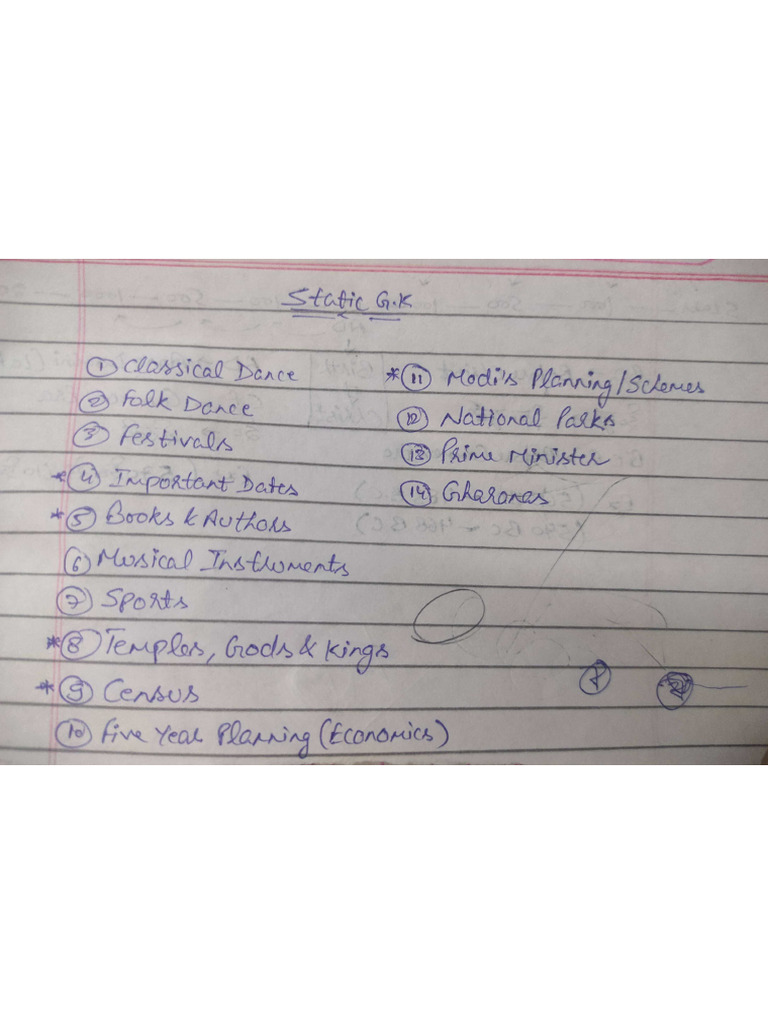 Static G.K
① Classical Dance
② Folk Dance
③ Festivals
*④ Important Dates
*⑤ Books & Authors
⑥ Musical Instruments
⑦ Sports
*⑧ Temples, Gods & Kings
*⑨ Census
⑩ Five Year Planning (Economics)
*⑪ Modi's Planning/Schemes
⑫ National Parks
⑬ Prime Minister
⑭ Gharanas